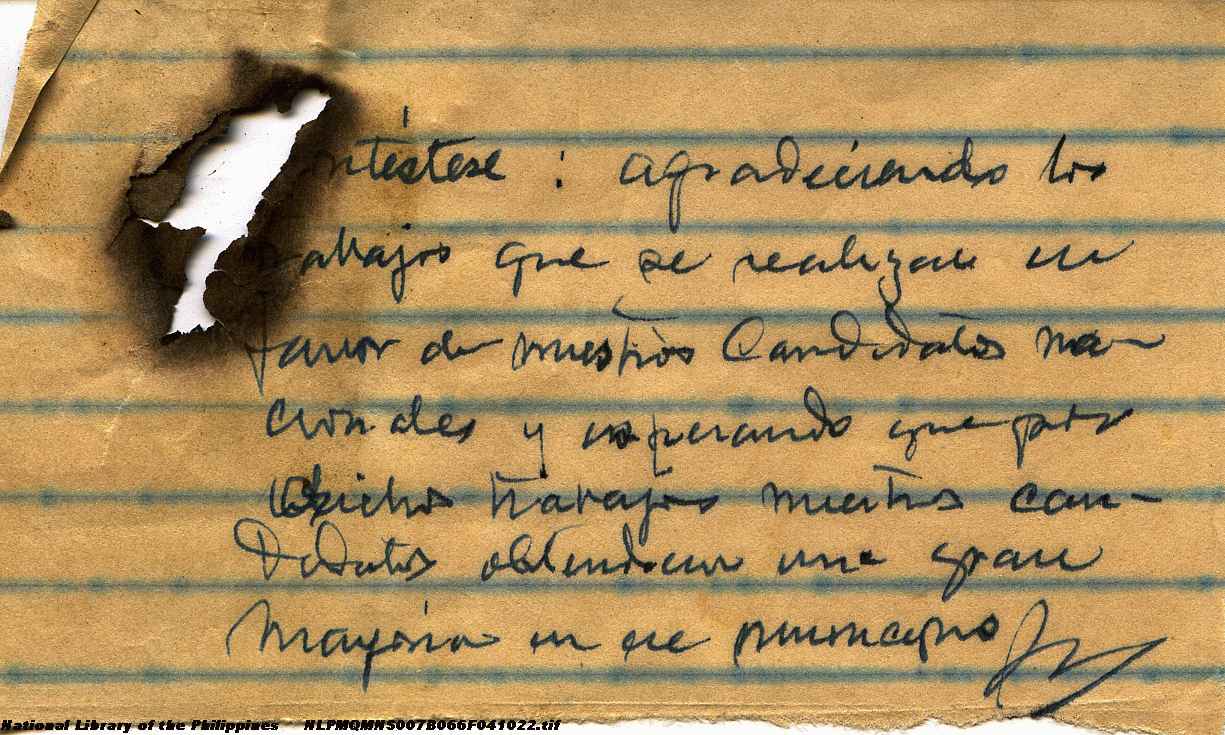 ntéstese : agradeciendo los
trabajos que se realizan en
favor de nuestros Candidatos na-
cionales y esperando que por
dichos trabajos nuestros can-
didatos obtendran una gran
Mayoria en ese municipio
National Library of the Philippines NLPMQMNS007B066F041022.tif